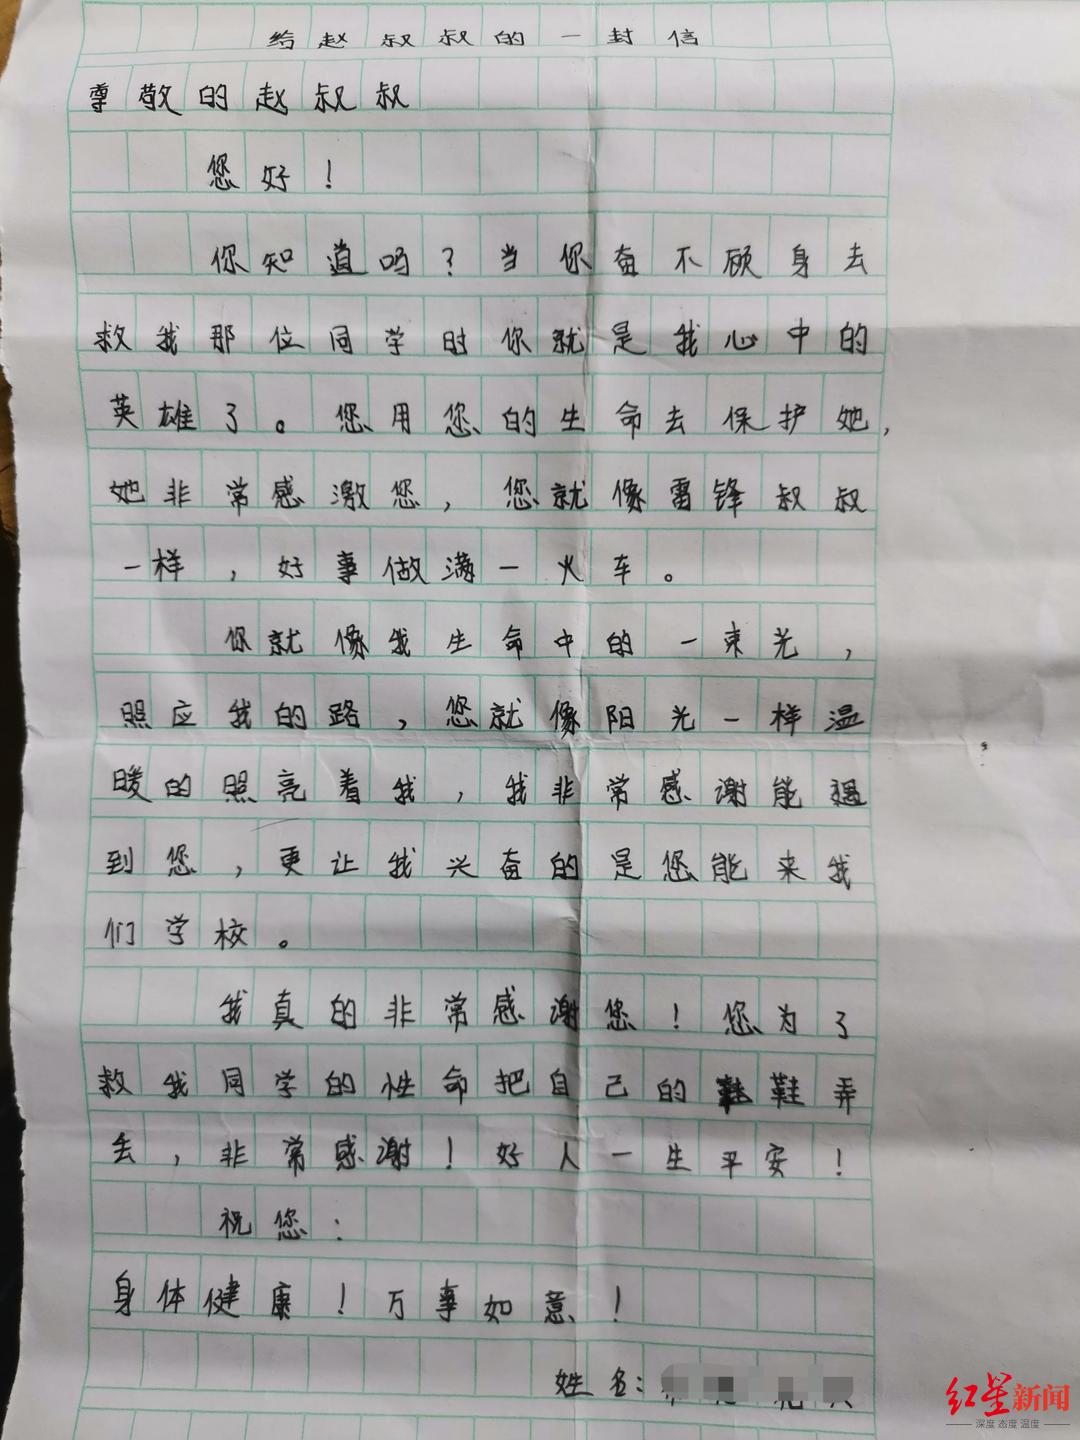 给赵叔叔的一封信
尊敬的赵叔叔
您好!
你知道吗?当你奋不顾身去
救我那位同学时你就是我心中的
英雄了。您用您的生命去保护她,
她非常感激您,您就像雷锋叔叔
一样,好事做满一火车。
你就像我生命中的一束光,
照应我的路,您就像阳光一样温
暖的照亮着我,我非常感谢能遇
到您,更让我兴奋的是您能来我
们学校。
我真的非常感谢您!您为了
救我同学的性命把自己的鞋弄
丢,非常感谢!好人一生平安!
祝您:
身体健康!万事如意!
姓名:
红星新闻
深度 态度 温度